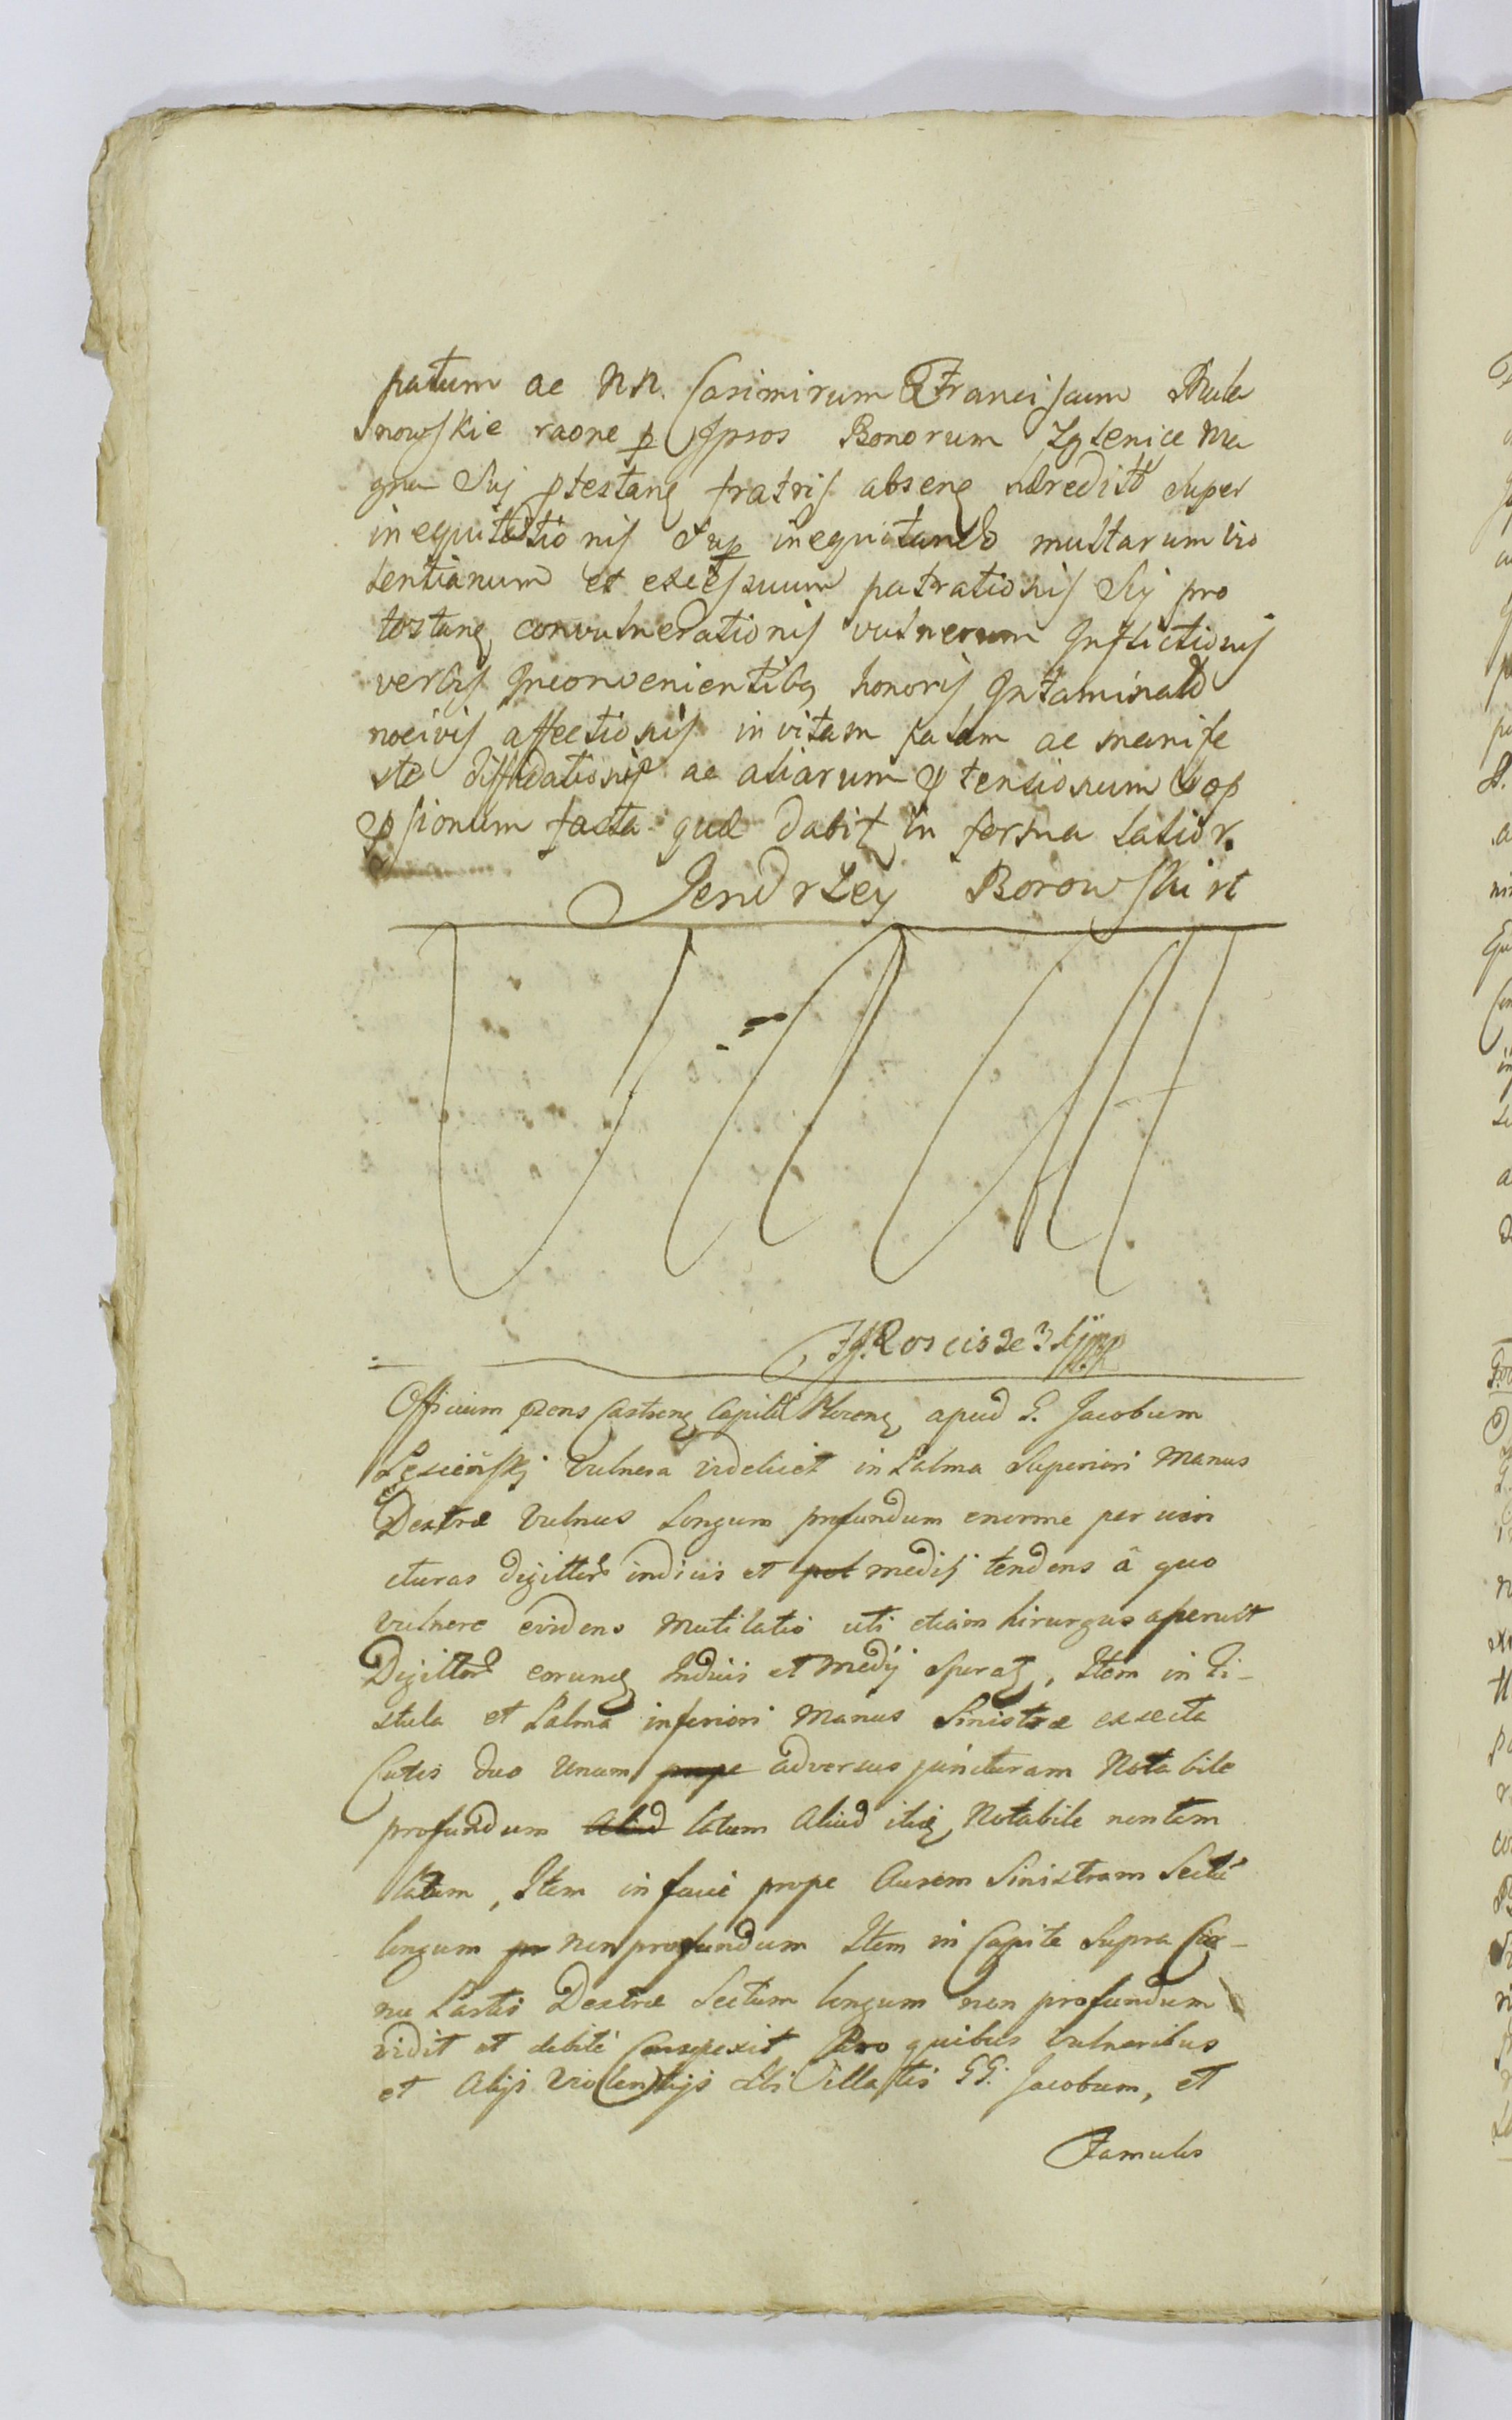 patum ac NN. Casimirum & Franciscum Mula
nowskie raone p Ipsos Bonorum Zglenice Ma
gna Sui ptestang fratris abseng hæredittī super
inequitationis & sup inequitando multarum vio
lentiarum et excessuum patrationis Sui pro
testang convulnerationis vulnerum Inflictionis
verbis Inconvenientibq honoris Intaminatō
nocivis affectionis in vitam palam ac manife
ste diffidationis ac aliarum ptensionum & op
psionum facta quæ dabit in forma latior.
Jendrzey Borowski
Officium psens Castreng Capitāl Ploceng apud G. Jacobum
Lęscieński Vulnera videlicet in Palma Superiori Manus
Dextræ Vulnus Longum profundum enorme per iun
cturas digittorū indicis et pol medij tendens â quo
vulnere evidens Mutilatio uti etiam hirurgus aperuit
Digittorū eorundq Indicis et Medij Speratq, Item in Fi-
stula et Palma inferiori Manus Sinistræ exsecta
Cutis duo Unum prope adversus juncturam Notabile
profundum Aliud latum Aliud itidq Notabile non tam
latum, Item in facie prope Aurem Sinistram Sectū
longum pr non profundum Item in Capite Supra Cor-
nu Partis Dextræ Sectum longum non profundum
vidit et debitè Conspexit Pro quibus Vulneribus
et Alijs Violentijs Sibi illatis GG. Jacobum, et
Famulos